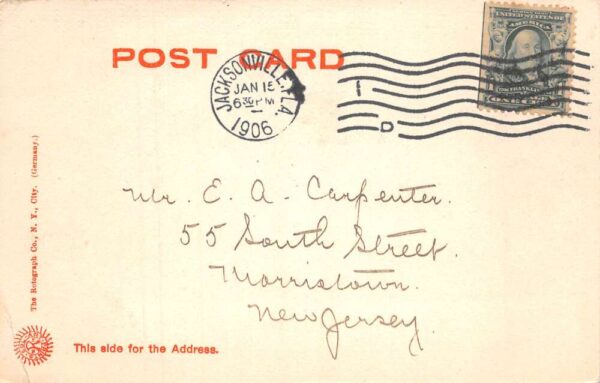 POST CARD
JACKSONVILLE, FLA.
JAN 15
6 30 PM
1906
1
D
UNITED STATES OF
AMERICA
FRANKLIN
ONE CENT
Mr. E. A. Carpenter.
55 South Street.
Morristown.
New Jersey.
The Rotograph Co., N. Y., City. (Germany.)
This side for the Address.